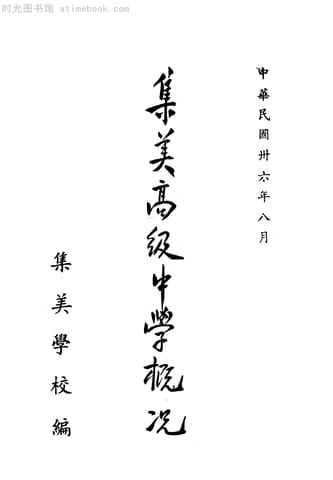 时光图书馆 atimebook.com
中華民國卅六年八月
集美高級中學概况
集美學校編